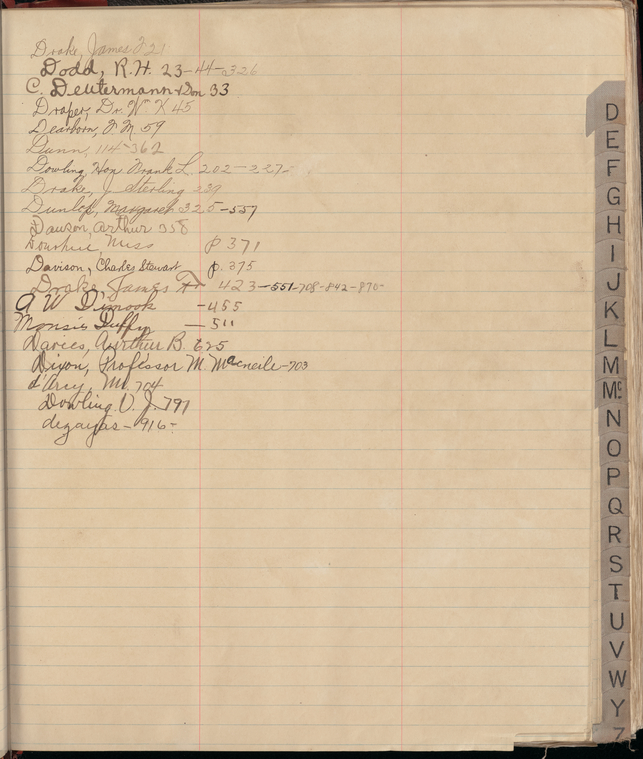 Drake, James F 21
Dodd, R. H. 23-44-326
C. Deutermann & Son 33
Draper, Dr. Wm K 45
Dearborn, F. M. 59
Dunn, 114-362
Dowling, Hon Frank L. 202-227-
Drake, J Sterling 239
Dunlop, Margaret 325-557
Dawson, Arthur 358
Miss p 371
Davison, Charles Stewart p. 375
Drake James F 423-551-708-842-870-
A W Dimock -455
Monsie Duffy - 511
Davies, Aurthur B. 625
Dixon, Professor M. Macneile-703
d'Arcy, M. 704
Dowling V. J. 791
916-
D
E
F
G
H
I
J
K
L
M
Mc
N
O
P
Q
R
S
T
U
V
W
Y
Z